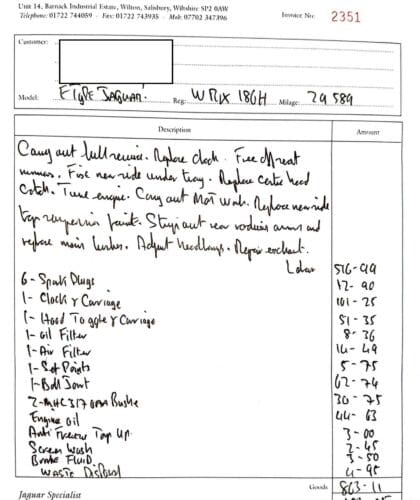 Unit 14, Barnack Industrial Estate, Wilton, Salisbury, Wiltshire SP2 0AW
Telephone: 01722 744059 · Fax: 01722 743935 · Mob: 07702 347396
Invoice No: 2351
Customer:
Model: E Type Jaguar. Reg: WRX 186H Milage: 29589
Description Amount
Carry out full service. Replace clock. Free off seat
runners. Fix near side under tray. Replace centre hood
catch. Tune engine. Carry out MOT work. Replace near side
top suspension joint. Strip out rear radius arms and
replace main bushes. Adjust headlamps. Repair exhaust.
Labour 516-99
6- Spark Plugs 12-90
1- Clock & Carriage 101-25
1- Hood Toggle & Carriage 51-35
1- Oil Filter 8-36
1- Air Filter 14-49
1- Set Points 5-75
1- Ball Joint 62-74
2- Bushe 30-75
Engine oil 44-63
Anti Freeze Top Up 3-00
Screen Wash 2-45
Brake Fluid 3-50
Waste Disposal 4-95
Jaguar Specialist Goods 863-11